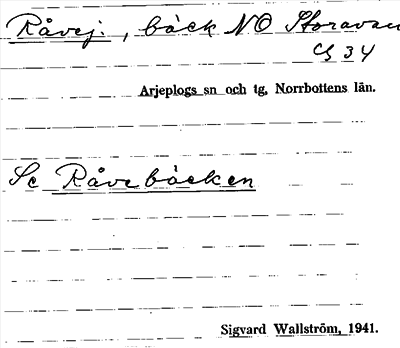 Råvej. , bäck NO Storavan
C 34
Arjeplogs sn och tg, Norrbottens län.
Se Råvebäcken
Sigvard Wallström, 1941.